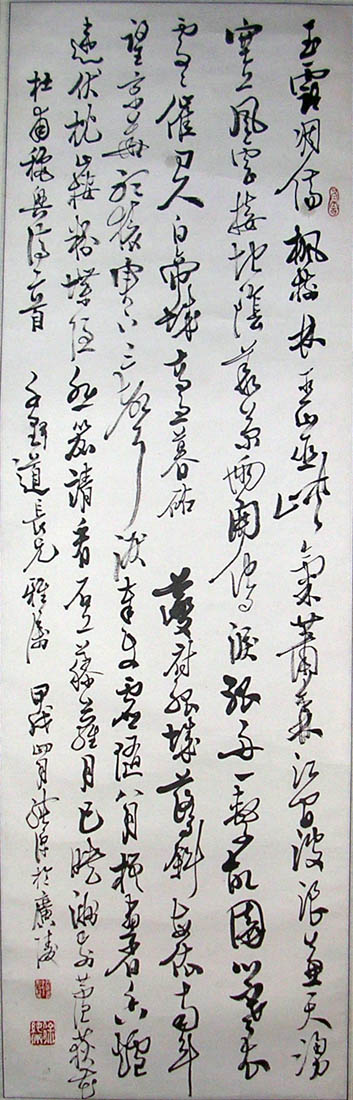 玉露凋傷楓樹林巫山巫峽氣蕭森江間波浪兼天湧
塞上風雲接地陰叢菊兩開他日淚孤舟一繫故園心寒衣
處々催刀尺白帝城高急暮砧夔府孤城落日斜每依南斗
望京華聽猿實下三聲淚奉使虛隨八月槎畫省香爐
違伏枕山樓粉堞隱悲笳請看石上藤蘿月已映洲前蘆荻花
杜甫秋興詩二首 道長兄雅屬 甲戌四月 於廣陵